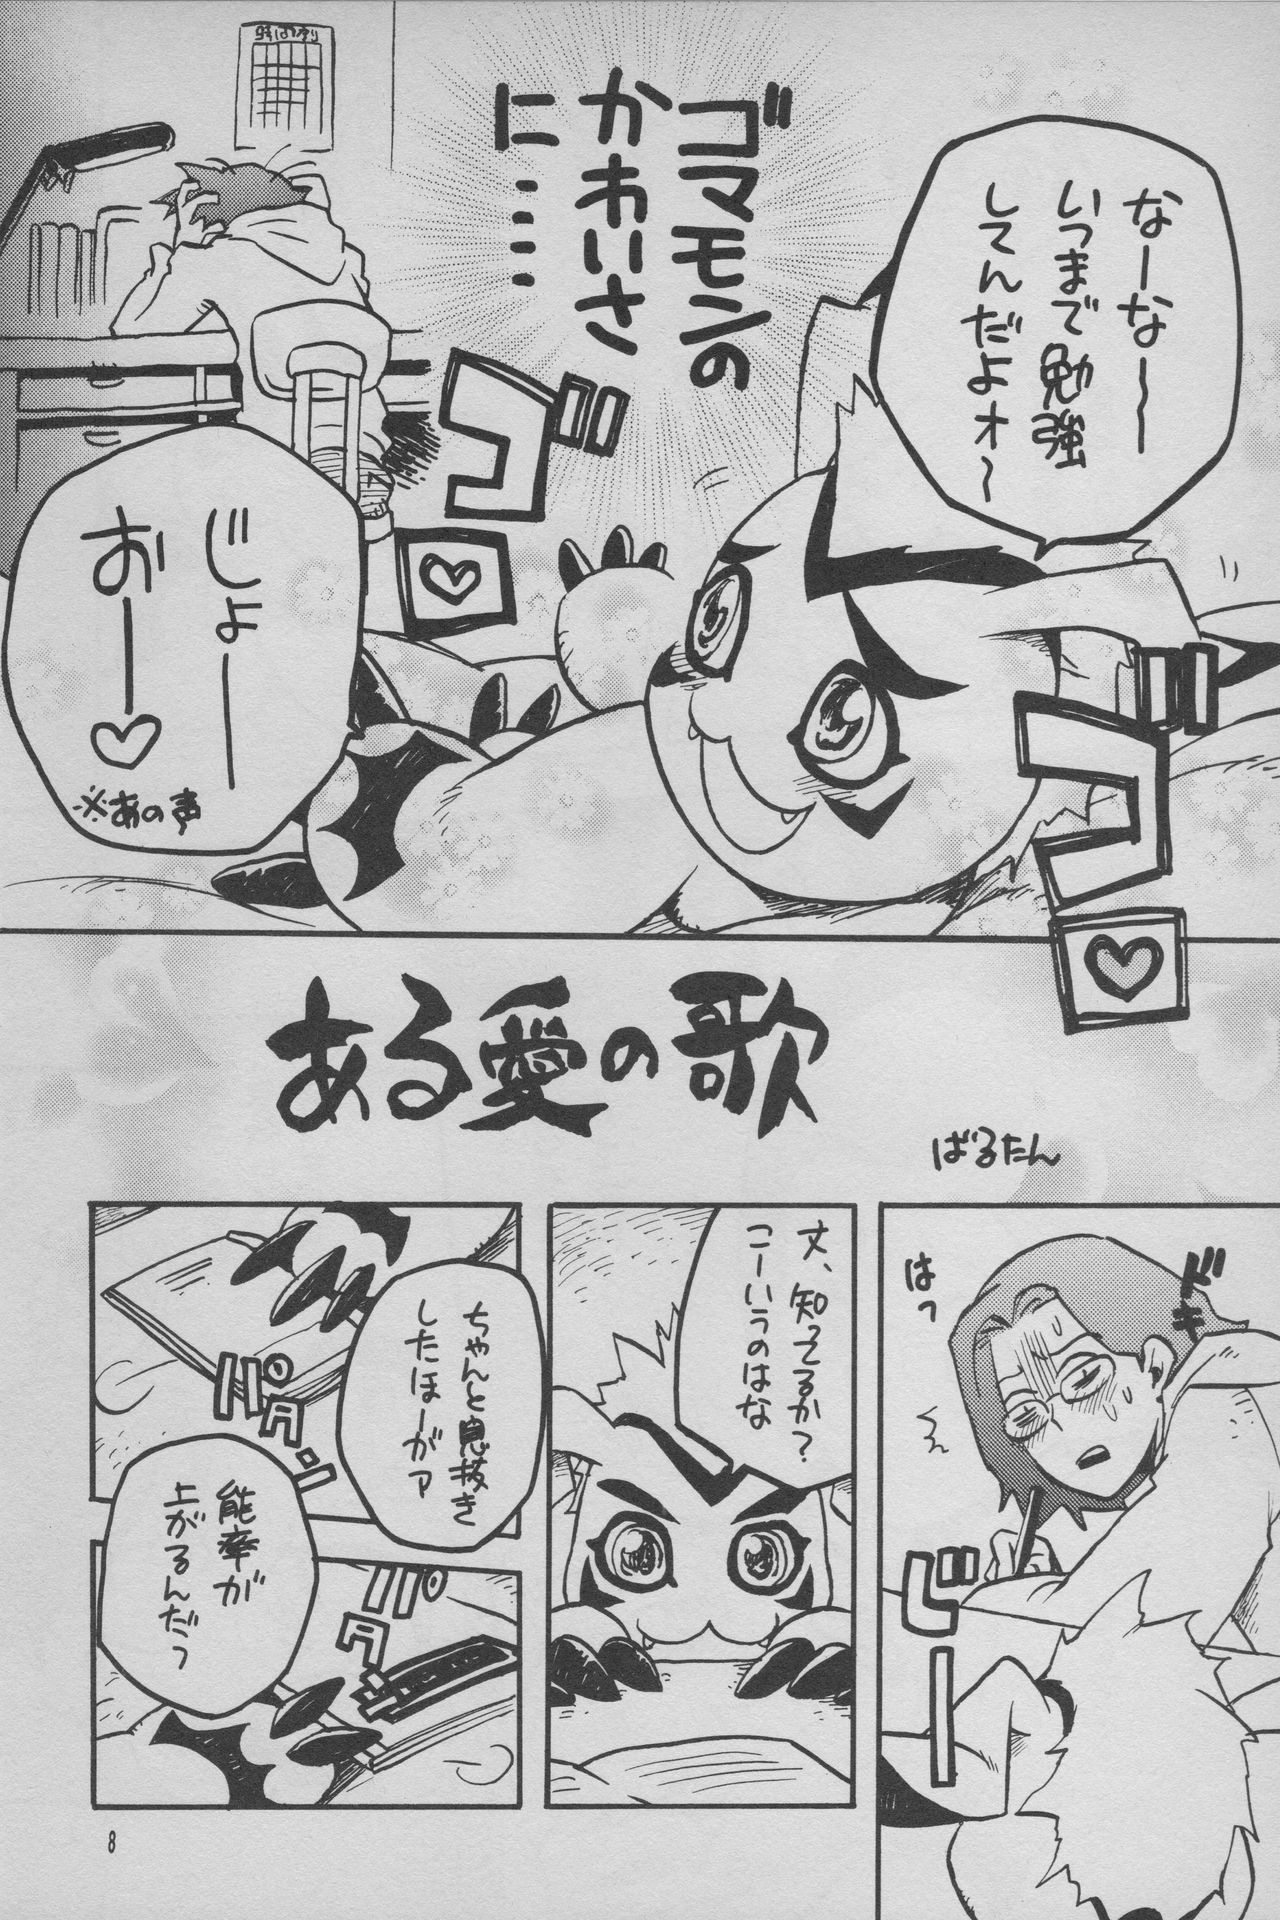 なーな〜〜
いつまで勉強
してんだよォ〜
ゴマモンの
かわいさ
に……
ゴ♡
ゴ♡
じょーー
おーー♡
※あの声
ある愛の歌
ばるたん
ドキ
はっ
ビー
丈、知ってるか?
こーいうのはな
ちゃんと息抜き
したほーがァ
パタン
能率が
上がるんだっ
パタ
8